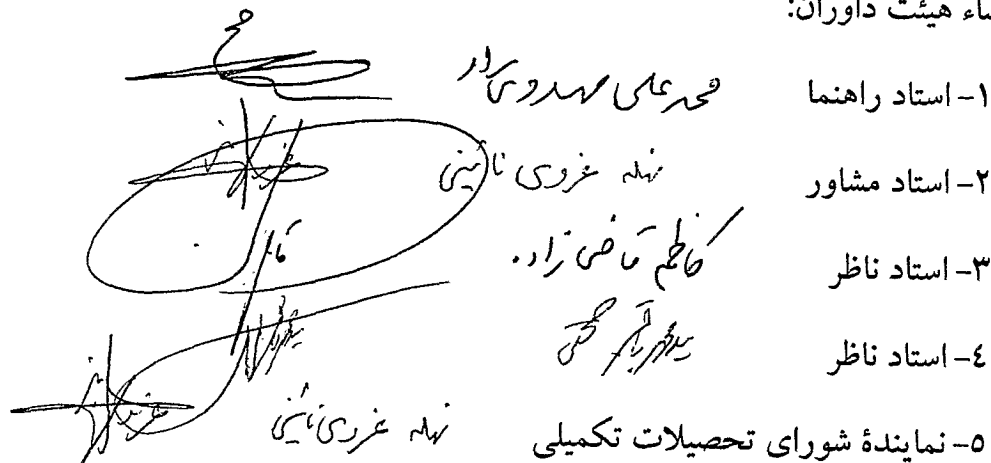 ساء هیئت داوران:
۱- استاد راهنما محمد علی مهدوی راد
۲- استاد مشاور نهله غروی نائینی
۳- استاد ناظر کاظم قاضی زاده
٤- استاد ناظر سید محمد باقر حجتی
٥- نمایندهٔ شورای تحصیلات تکمیلی نهله غروی نائینی